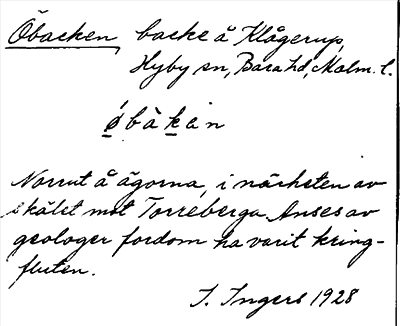 Öbacken backe å Klågerup,
Hyby sn, Bara hd, Malm. l.
ǿbàkän
Norrut å ägorna, i närheten av
skälet mot Torreberga. Anses av
geologer fordom ha varit kring-
fluten.
I. Ingers 1928